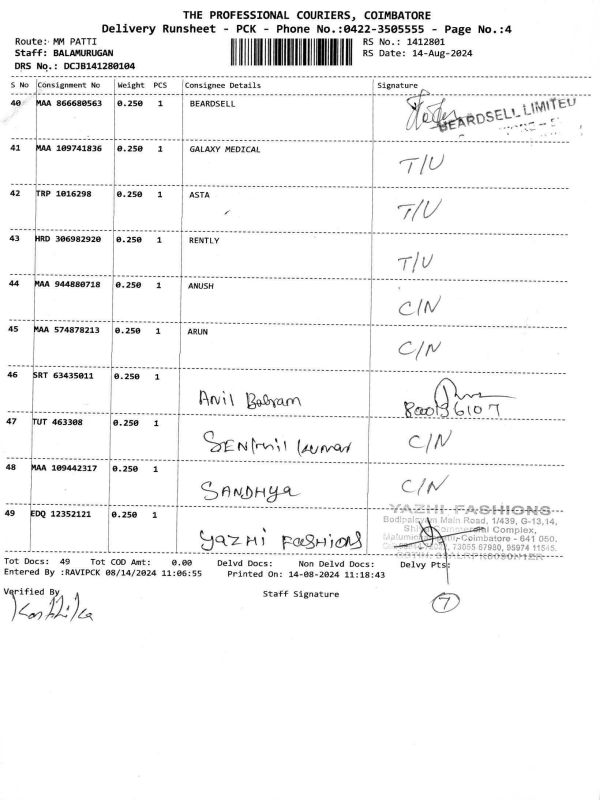 THE PROFESSIONAL COURIERS, COIMBATORE
Delivery Runsheet - PCK - Phone No.:0422-3505555 - Page No.:4
Route: MM PATTI RS No.: 1412801
Staff: BALAMURUGAN RS Date: 14-Aug-2024
DRS No.: DCJB141280104
S No Consignment No Weight PCS Consignee Details Signature
40 MAA 866680563 0.250 1 BEARDSELL BEARDSELL LIMITED
41 MAA 109741836 0.250 1 GALAXY MEDICAL T/U
42 TRP 1016298 0.250 1 ASTA T/U
43 HRD 306982920 0.250 1 RENTLY T/U
44 MAA 944880718 0.250 1 ANUSH C/N
45 MAA 574878213 0.250 1 ARUN C/N
46 SRT 63435011 0.250 1 Anil Babram 8000136107
47 TUT 463308 0.250 1 SENthil kumar C/N
48 MAA 109442317 0.250 1 SANDHYA C/N
49 EDQ 12352121 0.250 1 YAZHI FASHIONS YAZHI FASHIONS
Bodipalayam Main Road, 1/439, G-13,14,
Commercial Complex,
Coimbatore - 641 050.
73055 67980, 95974 11545.
Tot Docs: 49 Tot COD Amt: 0.00 Delvd Docs: Non Delvd Docs: Delvy Pts:
Entered By :RAVIPCK 08/14/2024 11:06:55 Printed On: 14-08-2024 11:18:43
Verified By Staff Signature
7